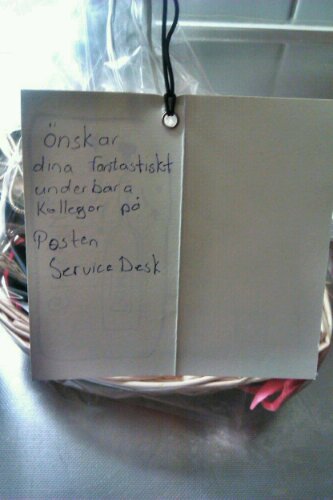 Önskar
dina fantastiskt
underbara
Kollegor på
Posten
Service Desk